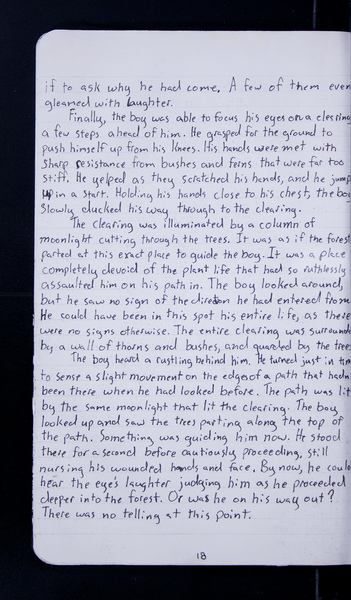 if to ask why he had come. A few of them even
gleamed with laughter.
Finally, the boy was able to focus his eyes on a clearing
a few steps ahead of him. He grasped for the ground to
push himself up from his knees. His hands were met with
sharp resistance from bushes and ferns that were far too
stiff. He yelped as they scratched his hands, and he jump
up in a start. Holding his hands close to his chest, the boy
slowly ducked his way through to the clearing.
The clearing was illuminated by a column of
moonlight cutting through the trees. It was as if the forest
parted at this exact place to guide the boy. It was a place
completely devoid of the plant life that had so ruthlessly
assaulted him on his path in. The boy looked around,
but he saw no sign of the direction he had entered from.
He could have been in this spot his entire life, as there
were no signs otherwise. The entire clearing was surrounde
by a wall of thorns and bushes, and guarded by the trees
The boy heard a rustling behind him. He turned just in tim
to sense a slight movement on the edges of a path that hadn
been there when he had looked before. The path was lit
by the same moonlight that lit the clearing. The boy
looked up and saw the trees parting along the top of
the path. Something was guiding him now. He stood
there for a second before cautiously proceeding, still
nursing his wounded hands and face. By now, he could
hear the eye's laughter judging him as he proceeded
deeper into the forest. Or was he on his way out?
There was no telling at this point.
18